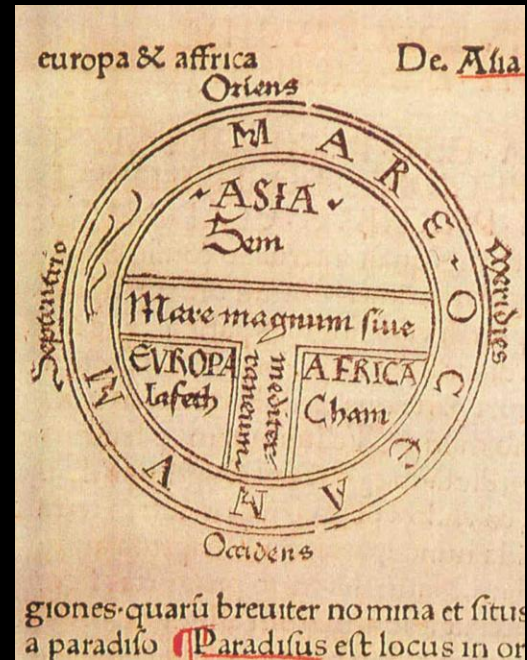 europa & affrica
De. Asia
Oriens
MARE OCCEANVM
Septentrio
Meridies
· ASIA ·
Sem
Mare magnum siue
mediter⸗
raneum
EVROPA
Iafeth
AFRICA
Cham
Occidens
giones·quarū breuiter nomina et situs
a paradiso Paradisus est locus in or